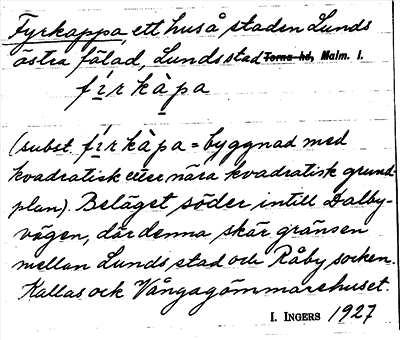 Fyrkappa, ett hus å staden Lunds
östra fälad, Lunds stad Torna hd, Malm. l.
fi̱rkàpa
(subst. fi̱rkàpa = byggnad med
kvadratisk eller nära kvadratisk grund-
plan). Beläget söder intill Dalby-
vägen, där denna skär gränsen
mellan Lunds stad och Råby socken.
Kallas ock Vångagömmarehuset.
I. INGERS 1927